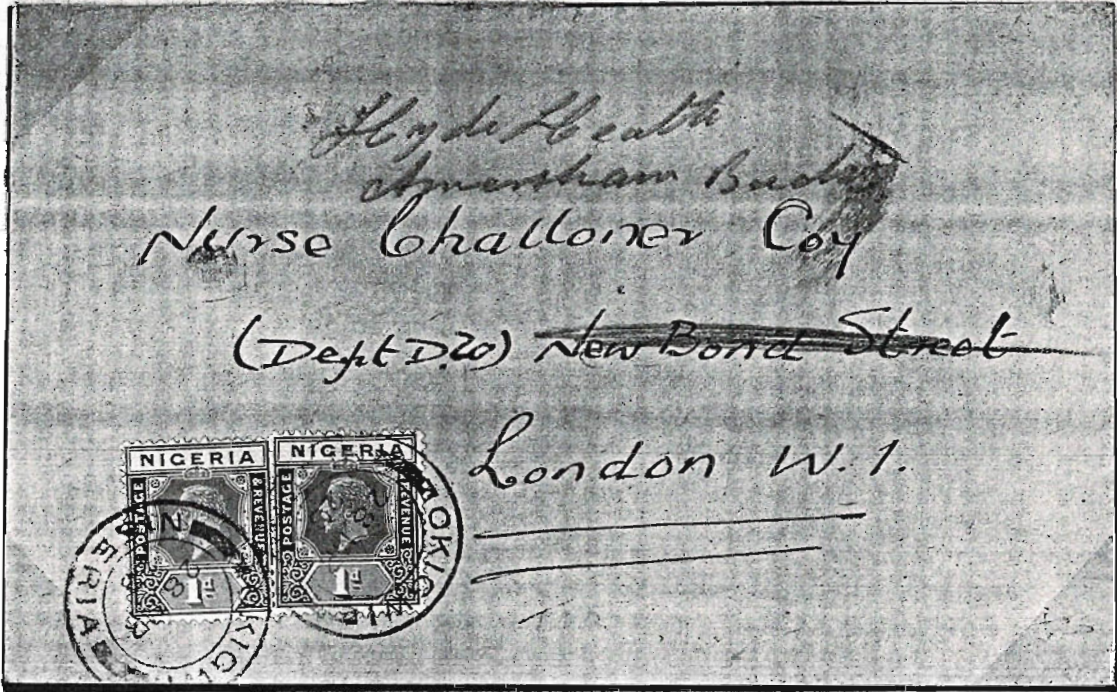 Hyde Heath
Amersham Bucks
Nurse Challoner Coy
(Dept D.20) New Bond Street
London W. 1.
NIGERIA
POSTAGE & REVENUE
1d
NIGERIA
POSTAGE REVENUE
1d